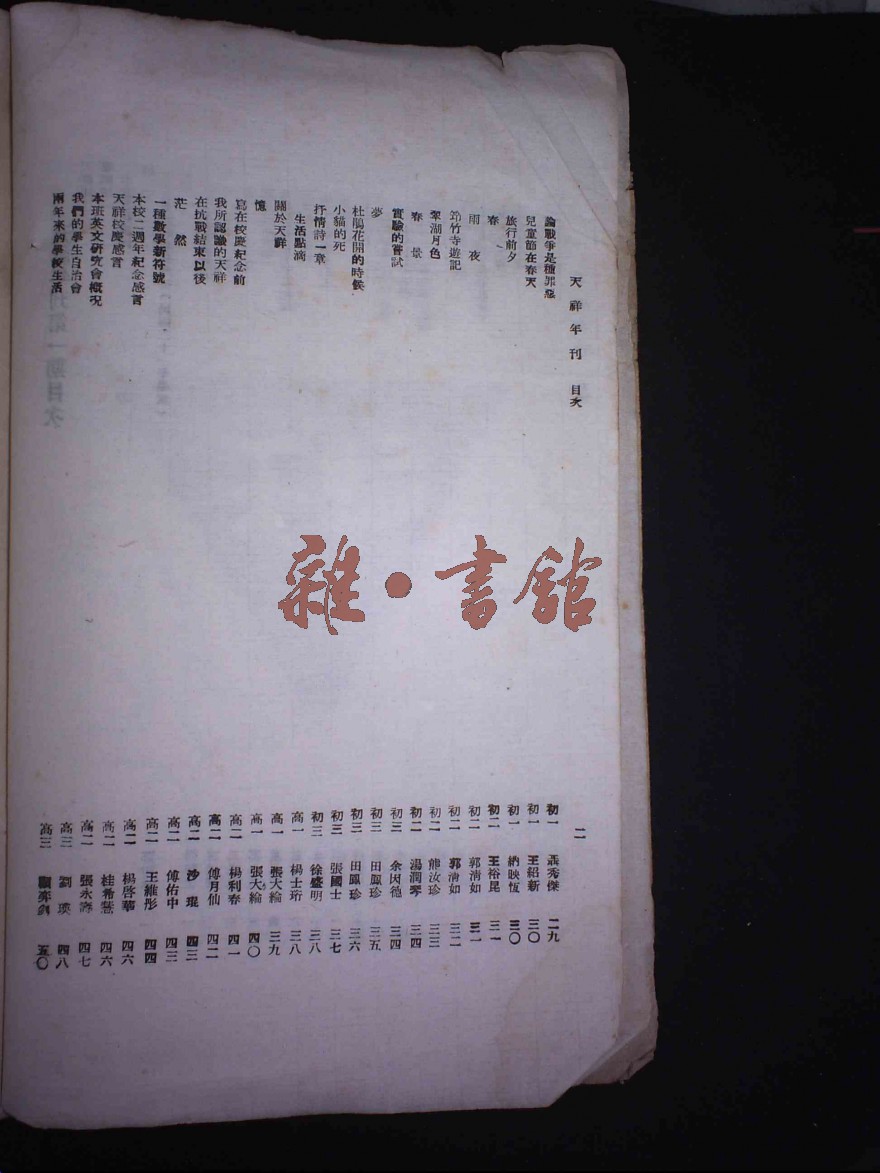 天祥年刊 目次
二
論戰爭是種罪惡 初一 聶秀傑 二九
兒童節在春天 初一 王紹新 三〇
旅行前夕 初一 納映恆 三〇
春 初二 王裕昆 三一
雨夜 初一 郭清如 三一
筇竹寺遊記 初一 郭清如 三二
翠湖月色 初二 熊汝珍 三三
春景 初二 湯潤琴 三四
實驗的嘗試 初三 余因德 三四
夢 初三 田鳳珍 三五
杜鵑花開的時候 初三 田鳳珍 三六
小貓的死 初三 張國士 三七
抒情詩一章 初三 徐盛明 三八
生活點滴 高一 楊士珩 三八
關於天祥 高一 張大綸 三九
憶 高一 張大綸 四〇
寫在校慶紀念前 高二 楊利春 四一
我所認識的天祥 高二 傅月仙 四二
在抗戰結束以後 高二 沙琨 四三
茫然 高二 傅佑中 四三
一種數學新符號 高二 王維彤 四四
本校二週年紀念感言 高二 楊啓華 四六
天祥校慶感言 高二 桂希慧 四六
本班英文研究會概況 高二 張永濤 四七
我們的學生自治會 高三 劉瑛 四八
兩年來的學校生活 高三 五〇
雜·書館